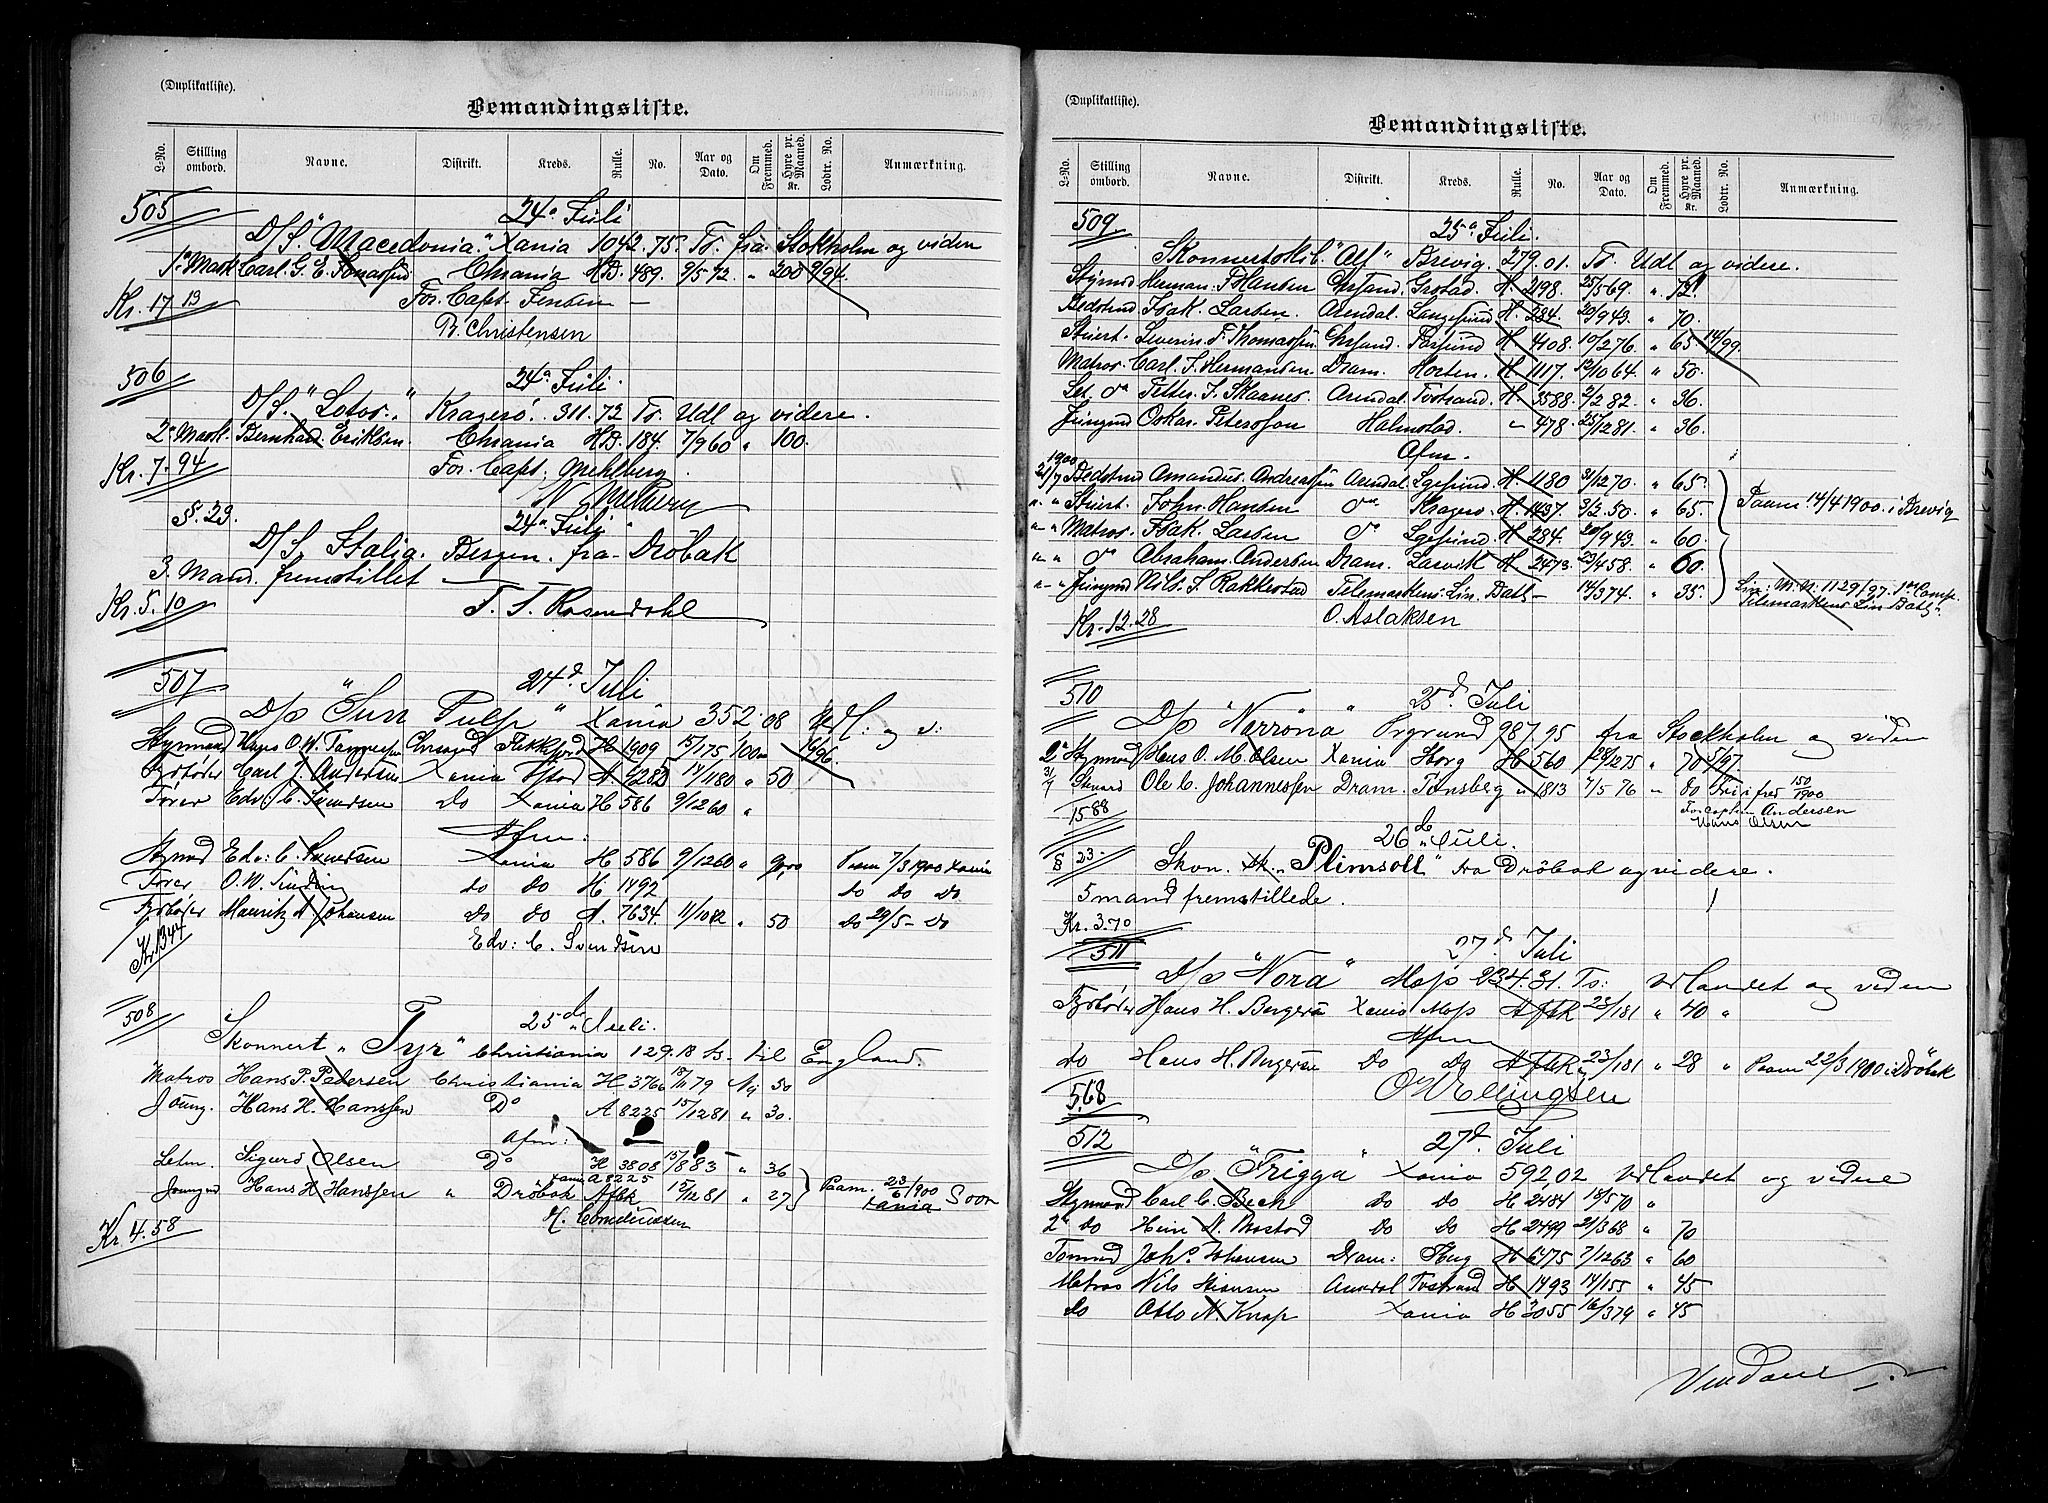 (Duplikatliste).
Bemandingsliste.
L-No. Stilling ombord. Navne. Distrikt. Kreds. Rulle. No. Aar og Dato. Om Fremmed. Hyre pr. Maaned. Kr. Lodtr. No. Anmærkning.
505 24de Juli
D/S. "Macedonia." Xania 1042.75. To. fra Stokholm og viden
1e Mask Carl. G. E. Jonassen Chrania HD. 489. 9/5 72. " 200 9/94.
Kr. 17.13 For. Capt. Jensen
R. Christensen
506 24de Juli.
D/S. "Lotos." Kragerö. 311.72 To. Udl og videre.
2e Mask. Bernhard. Eriksen. Chrania HD. 184. 7/9 60 " 100.
Kr. 7.94 For. Capt. Mehlberg.
§. 23. 24de Juli
D/S. Italia. Bergen. fra Dröbak
3. Mand. fremstillet
Kr. 5.10 T. S. Rosendahl
507 24d Juli
D/s "Sun Tulp" Xania 352,08 Udl: og v:
Styrmand Hans O. W. Tønnesen Chrsand Flekkfjord H 1909 15/1 75 100 16/96
Fyrbøder Carl J. Andersen Xania Ystad A 4282 14/11 80 " 50
Fører Edv. C. Svendsen do Xania H 586 9/12 60 "
Afm:
Stymd Edv: C. Svendsen Xania H 586 9/12 60 " 90,00 Paam 7/3 1900 Xania
Fører O. W. Sinding do do H 1492 do do do
Fyrbøder Mauritz A Johansen do do A. 7634. 11/10 82 " 50 do 29/5 - do
Kr. 1344 Edv: C. Svendsen
508 25de Juli.
Skonnert "Tyr" Christiania 129.18 ts - til England.
Matros Hans P. Pedersen Christiania H 3766 18/11 79 Nej 50
Joung. Hans H. Hanssen Do A 8225 15/12 81 " 30.
Afm:
Letm. Sigurd Olsen Do H 3808 15/8 83 " 36
Joungmd Hans H Hanssen " Dröbak Xania A 8225 Afbk 15/12 81 " 27 Paam. 23/6 1900 Xania Soon
Kr. 4.58
(Duplikatliste).
Bemandingsliste.
L-No. Stilling ombord. Navne. Distrikt. Kreds. Rulle. No. Aar og Dato. Om Fremmed. Hyre pr. Maaned. Kr. Lodtr. No. Anmærkning.
509. 25de Juli.
Skonnertskib. "Alf" Brevig. 279.01. To. Udl og videre.
Stÿrmd Herman. F. Hansen Chrsand. Grstad. H. 298. 25/5 69. " 72.
Bedstmd Isak. Larsen. Arendal. Langesund H. 284. 20/9 43. " 70.
Stuert. Severin. F. Thomassen Chrsand. Farsund H. 4108. 10/2 76. " 65 14/99.
Matros. Carl. F. Hermansen Dram. Horten. H. 1117. 12/10 64. " 50.
Let. do Petter. J. Skaanes. Arendal. Tvdsand. H. 3588. 2/2 82. " 36.
Jungmd Oskar. Petersson Halmstad. " 478. 25/12 81. " 36.
Afm.
1900
21/7 Bedstmd Amandus. Andreassen Arendal. Lgesund. H. 1180 31/12 70. " 65.
" " Stuert. John. Hansen do Kragerö H. 1437. 3/2 50. " 65. Paam. 14/4 1900. i Brevig
" " Matros. Isak. Larsen do Lgesund. H. 284. 20/9 43. " 60.
" " do Abraham. Andersen Dram. Larvik H. 2473. 23/4 58. " 60.
" " Jungmd Nils. S. Rakkestad Telemarkens. Lin. Batt. 14/3 74. " 35. Lin. M. N. 1129/97. 1ste Comp. Telemarkens Lin Batt.
Kr. 12.28 O. Aslaksen
510 25d Juli
D/s "Norröna" Örgrund 987,95 fra Stockholm og viden
2e Stymd Hans O. M. Olsen Xania Horg H 560 28/12 75 " 70 5/97
31/7 Stuard Ole C. Johannessen Dram. Tønsberg " 1813 7/5 76 " do Fri i fred 150/1900
1588 For captein Andersen
Hans Olsen
26de Juli.
§ 23. Skon. sk. "Plimsoll" fra Dröbak og videre.
5 mand fremstillede.
Kr. 3.70
511 27d Juli
D/s "Nora" Moss 234.31. Ts: Udlandet og viden
Fyrbøder Hans H. Bergersen Xania Moss Afbk 23/1 81 " 40 "
Afm
do Hans H. Bergersen Do Do Afbk 23/1 81 " 28 " Paam 22/3 1900 i Dröbak
5.68 O. Ellingsen
512 27d Juli
D/s "Frigga" Xania 592,02 Udlandet og videre
Stymand Carl C. Bech do do H 2484 18/5 70 "
2n do Hein A. Brostad Do do H 2499 21/3 68 " 70
Tømmd Johs. Johansen Dram: Haug H 6475 7/12 63 " 60
Matros Nils Stiansen Arendal Tvstrand H 1493 14/1 55 " 45
do Otto N. Knap Xania H 3055 16/3 79 " 45